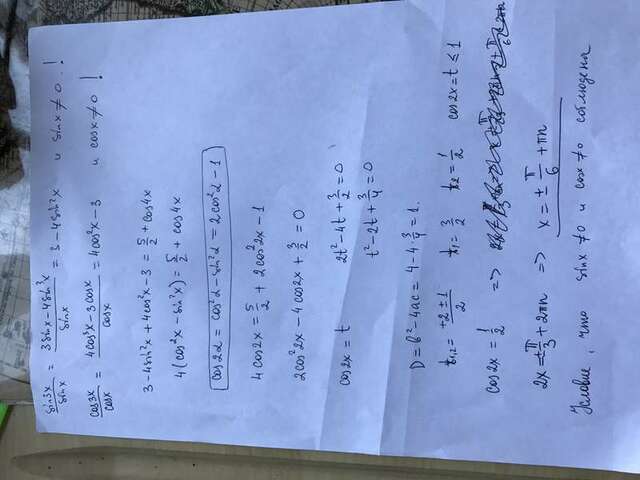 sin3x/sinx = (3sinx − 4sin³x)/sinx = 3 − 4sin²x и sinx ≠ 0 . !
cos3x/cosx = (4cos³x − 3cosx)/cosx = 4cos²x − 3 и cosx ≠ 0 !
3 − 4sin²x + 4cos²x − 3 = 5/2 + cos4x
4(cos²x − sin²x) = 5/2 + cos4x
cos2α = cos²α − sin²α = 2cos²α − 1
4cos2x = 5/2 + 2cos²2x − 1
2cos²2x − 4cos2x + 3/2 = 0
cos2x = t 2t² − 4t + 3/2 = 0
t² − 2t + 3/4 = 0
D = b² − 4ac = 4 − 4·3/4 = 1.
t₁,₂ = (+2 ± 1)/2 t₁ = 3/2 t₂ = 1/2 cos2x = t ≤ 1
cos2x = 1/2 =>
2x = ± π/3 + 2πn => x = ± π/6 + πn
Условие, что sinx ≠ 0 и cosx ≠ 0 соблюдена